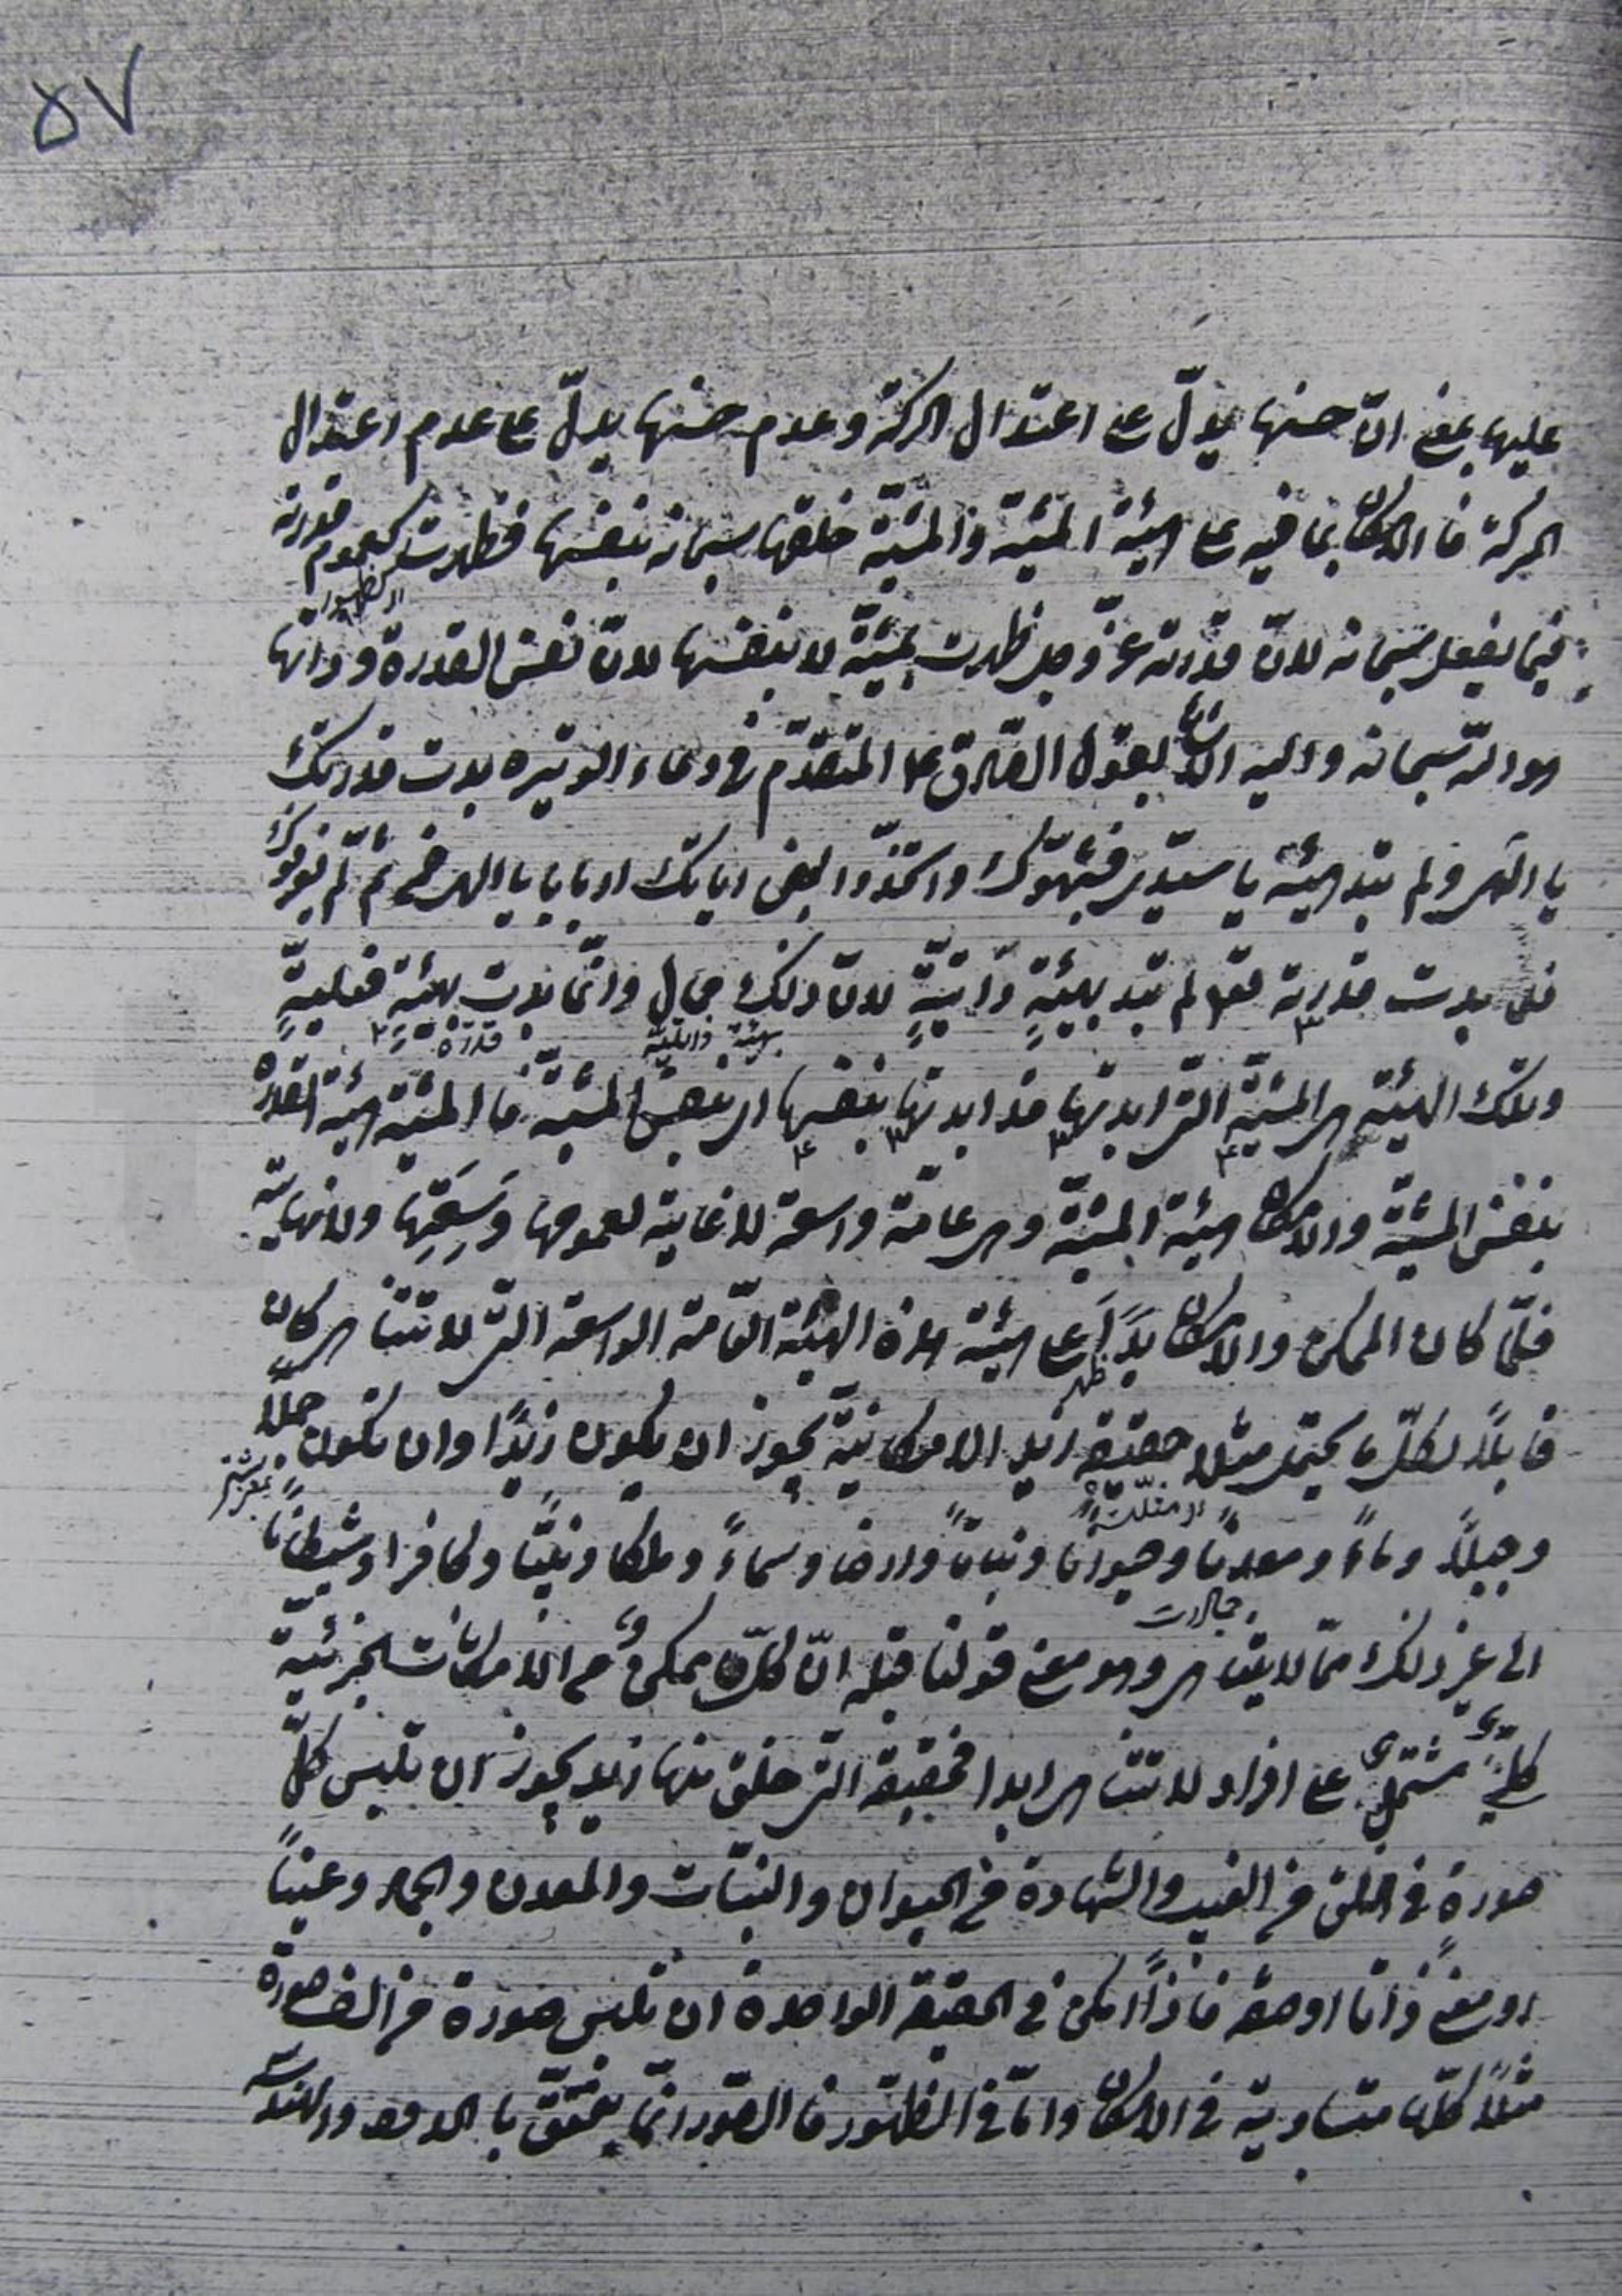 ٥٧
عليها بمعنى انّ حسنها يدلّ على اعتدال الحركة وعدم حسنها يدلّ على عدم اعتدال
الحركة فالامكان بما فيه على هيئة المشيّة والمشيّة خلقها سبحانه بنفسها فظهرت كعموم قدرته
اى كظهور
فيما يفعل سبحانه لانّ قدرته عزّ وجل ظهرت بمشيّة لا بنفسها لانّ نفس القدرة وذاتها
هو اللّه سبحانه واليه الاشارة بقول الصّادق ع المتقدّم فى دعاء الوتيرة بدت قدرتك
يا الهى ولم تبد هيئة يا سيّدى فشبّهوك واتّخذوا بعض اياتك اربابا يا الهى فمن ثم لم يعرفوك
فلمّا بدت قدرته تعالى لم تبد بهيئةٍ ذاتيّةٍ لانّ ذلك محال وانّما بدت بهيئةٍ فعليةٍ
بهيئة ذاتيّة قدرة
وتلك الهيئة هى المشيّة الّتى ابدتها قد ابدتها بنفسها اى بنفس المشيّة فالمشيّة هيئة القدرة
بنفس المشيّة والامكان هيئة المشيّة وهى عامّة واسعة لا غاية لعمومها وسَعَتِها ولا نهاية
فلمّا كان الممكن والامكان بدَاَ على هيئة هذه الهيئة العامّة الواسعة الّتى لا تتناهى كان
ظهر
قابلًا لكلّ ما يحتمل مثلا حقيقة زيد الامكانيّة يجوز ان يكون زيدًا وان تكون جملًا
وجبلًا وماءً ومعدنًا وحيوانا ونباتًا وارضا وسماءً وملكا ونبيّا وكافرا وشيطانًا
الى غير ذلك ممّا لا يتناهى وهو معنى قولنا قبله انّ كلّ ممكن من الامكانات الجزئيّة
كلّىّ مشتمل على افراد لا تتناهى ابدا فحقيقة الّتى خلق منها زيد يجوز ان تلبس كلّ
صورةٍ فى الخلق من الغيب والشّهادة من الحيوان والنّبات والمعدن والجماد وعينًا
او معنى ذاتا او صفة فاذًا امكن فى الحقيقة الواحدة ان تلبس صورة من الف صورة
مثلًا كلّها متساوية فى الامكان وامّا فى الظّهور فالصّور انّما يتحقّق بالحدود والهندسة